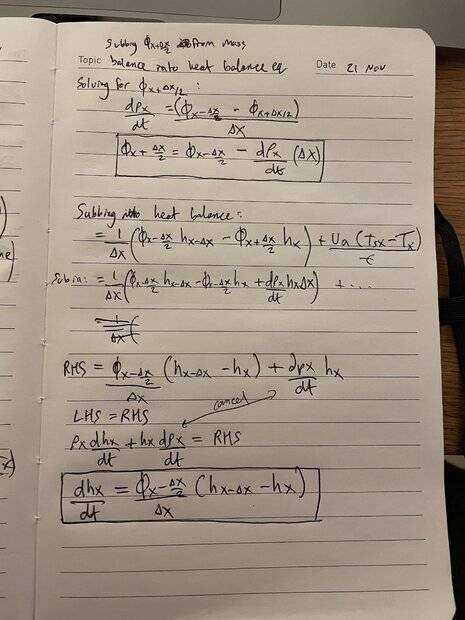 Subbing ϕx+Δx/2 from mass
Topic balance into heat balance eq Date 21 NOV
Solving for ϕx+Δx/2 :
dρx/dt = (ϕx-Δx/2 - ϕx+Δx/2)/Δx
ϕx+Δx/2 = ϕx-Δx/2 - dρx/dt (Δx)
Subbing into heat balance:
= 1/Δx (ϕx-Δx/2 hx-Δx - ϕx+Δx/2 hx) + Ua (Tsx - Tx)/ε
Sub in: = 1/Δx (ϕx-Δx/2 hx-Δx - ϕx-Δx/2 hx + dρx/dt hx Δx) + ...
RHS = ϕx-Δx/2 / Δx (hx-Δx - hx) + dρx/dt hx
cancel
LHS = RHS
ρx dhx/dt + hx dρx/dt = RHS
dhx/dt = ϕx-Δx/2 / Δx (hx-Δx - hx)